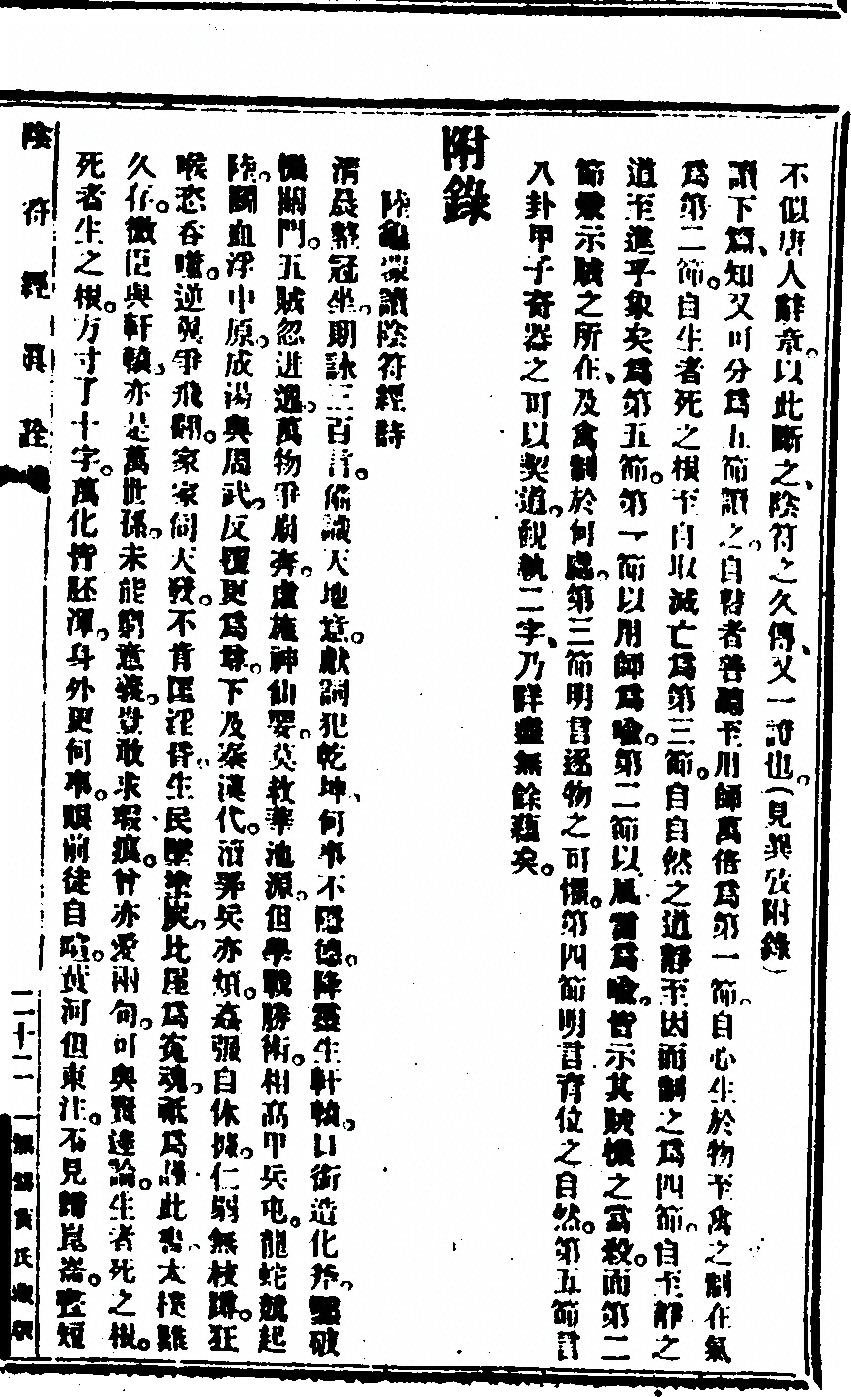 不似唐人辭章。以此斷之、陰符之久傳、又一證也。(見異攷附錄)
讀下篇、知又可分為五節讀之。自瞽者善聽至用師萬倍為第一節。自心生於物至禽之制在氣
為第二節。自生者死之根至自取滅亡為第三節。自自然之道靜至因而制之為四節。自至靜之
道至進乎象矣為第五節。第一節以用師為喩。第二節以風雷為喩。皆示其賊機之當殺。而第二
節歷示賊之所在、及禽制於何處。第三節明言逐物之可懼。第四節明言育位之自然。第五節言
八卦甲子奇器之可以契道。觀執二字、乃詳盡無餘蘊矣。
附錄
陸龜蒙讀陰符經詩
清晨整冠坐、朗詠三百言。備識天地意、獻詞犯乾坤、何事不隱德。降靈生軒轅。口銜造化斧、鑿破
機關門。五賊忽迸逸、萬物爭崩奔。虛施神仙要、莫救華池源。但學戰勝術。相高甲兵屯。龍蛇競起
陸。鬬血浮中原。成湯與周武、反覆更為尊。下及秦漢代。瀆弄兵亦煩。姦強自休據。仁弱無枝蹲。狂
喉恣吞噬。逆翼爭飛翻。家家伺天發。不肯匡淫昏。生民墜塗炭、比屋為寃魂。祇為讀此書、大樸難
久存。微臣與軒轅、亦是萬世孫。未能窮意義、豈敢求瑕痕。曾亦愛兩句。可與賢達論。生者死之根。
死者生之根。方寸了十字。萬化皆胚渾。身外更何事。眼前徒自喧。黃河但東注。不見歸崑崙。晝短
陰符經眞詮
二十二
無錫黃氏